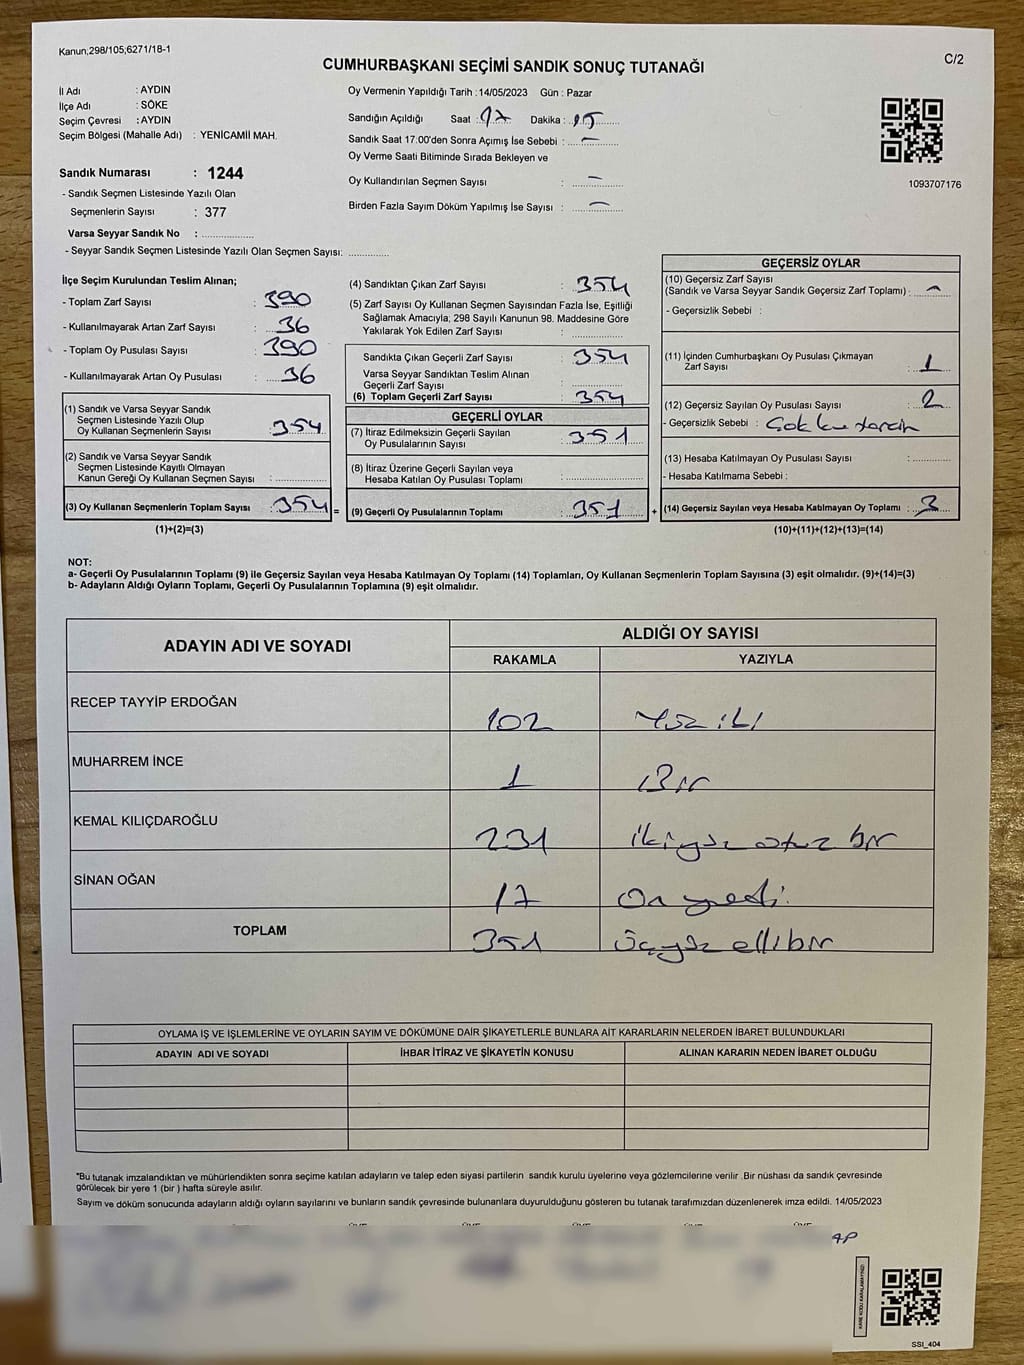 Kanun,298/105;6271/18-1
C/2
CUMHURBAŞKANI SEÇİMİ SANDIK SONUÇ TUTANAĞI
İl Adı : AYDIN
İlçe Adı : SÖKE
Seçim Çevresi : AYDIN
Seçim Bölgesi (Mahalle Adı) : YENİCAMİİ MAH.
Sandık Numarası : 1244
- Sandık Seçmen Listesinde Yazılı Olan
Seçmenlerin Sayısı : 377
Varsa Seyyar Sandık No :
- Seyyar Sandık Seçmen Listesinde Yazılı Olan Seçmen Sayısı:
Oy Vermenin Yapıldığı Tarih :14/05/2023 Gün : Pazar
Sandığın Açıldığı Saat : 17 Dakika : 15
Sandık Saat 17:00'den Sonra Açımış İse Sebebi : –
Oy Verme Saati Bitiminde Sırada Bekleyen ve
Oy Kullandırılan Seçmen Sayısı : –
Birden Fazla Sayım Döküm Yapılmış İse Sayısı : –
1093707176
İlçe Seçim Kurulundan Teslim Alınan;
- Toplam Zarf Sayısı : 390
- Kullanılmayarak Artan Zarf Sayısı : 36
- Toplam Oy Pusulası Sayısı : 390
- Kullanılmayarak Artan Oy Pusulası : 36
(1) Sandık ve Varsa Seyyar Sandık
Seçmen Listesinde Yazılı Olup
Oy Kullanan Seçmenlerin Sayısı : 354
(2) Sandık ve Varsa Seyyar Sandık
Seçmen Listesinde Kayıtlı Olmayan
Kanun Gereği Oy Kullanan Seçmen Sayısı :
(3) Oy Kullanan Seçmenlerin Toplam Sayısı : 354 =
(1)+(2)=(3)
(4) Sandıktan Çıkan Zarf Sayısı : 354
(5) Zarf Sayısı Oy Kullanan Seçmen Sayısından Fazla İse, Eşitliği
Sağlamak Amacıyla; 298 Sayılı Kanunun 98. Maddesine Göre
Yakılarak Yok Edilen Zarf Sayısı :
Sandıkta Çıkan Geçerli Zarf Sayısı : 354
Varsa Seyyar Sandıktan Teslim Alınan
Geçerli Zarf Sayısı :
(6) Toplam Geçerli Zarf Sayısı : 354
GEÇERLİ OYLAR
(7) İtiraz Edilmeksizin Geçerli Sayılan
Oy Pusulalarının Sayısı : 351
(8) İtiraz Üzerine Geçerli Sayılan veya
Hesaba Katılan Oy Pusulası Toplamı :
(9) Geçerli Oy Pusulalarının Toplamı : 351 +
GEÇERSİZ OYLAR
(10) Geçersiz Zarf Sayısı
(Sandık ve Varsa Seyyar Sandık Geçersiz Zarf Toplamı) : –
- Geçersizlik Sebebi :
(11) İçinden Cumhurbaşkanı Oy Pusulası Çıkmayan
Zarf Sayısı : 1
(12) Geçersiz Sayılan Oy Pusulası Sayısı : 2
- Geçersizlik Sebebi :
(13) Hesaba Katılmayan Oy Pusulası Sayısı :
- Hesaba Katılmama Sebebi :
(14) Geçersiz Sayılan veya Hesaba Katılmayan Oy Toplamı : 3
(10)+(11)+(12)+(13)=(14)
NOT:
a- Geçerli Oy Pusulalarının Toplamı (9) ile Geçersiz Sayılan veya Hesaba Katılmayan Oy Toplamı (14) Toplamları, Oy Kullanan Seçmenlerin Toplam Sayısına (3) eşit olmalıdır. (9)+(14)=(3)
b- Adayların Aldığı Oyların Toplamı, Geçerli Oy Pusulalarının Toplamına (9) eşit olmalıdır.
ADAYIN ADI VE SOYADI
ALDIĞI OY SAYISI
RAKAMLA YAZIYLA
RECEP TAYYİP ERDOĞAN 102 Yüz iki
MUHARREM İNCE 1 Bir
KEMAL KILIÇDAROĞLU 231 ikiyüz otuz bir
SİNAN OĞAN 17 On yedi.
TOPLAM 351 üçyüz elli bir
OYLAMA İŞ VE İŞLEMLERİNE VE OYLARIN SAYIM VE DÖKÜMÜNE DAİR ŞİKAYETLERLE BUNLARA AİT KARARLARIN NELERDEN İBARET BULUNDUKLARI
ADAYIN ADI VE SOYADI İHBAR İTİRAZ VE ŞİKAYETİN KONUSU ALINAN KARARIN NEDEN İBARET OLDUĞU
*Bu tutanak imzalandıktan ve mühürlendikten sonra seçime katılan adayların ve talep eden siyasi partilerin sandık kurulu üyelerine veya gözlemcilerine verilir .Bir nüshası da sandık çevresinde
görülecek bir yere 1 (bir ) hafta süreyle asılır.
Sayım ve döküm sonucunda adayların aldığı oyların sayılarını ve bunların sandık çevresinde bulunanlara duyurulduğunu gösteren bu tutanak tarafımızdan düzenlenerek imza edildi. 14/05/2023
KARE KODU KARALAMAYINIZ!
SSİ_404